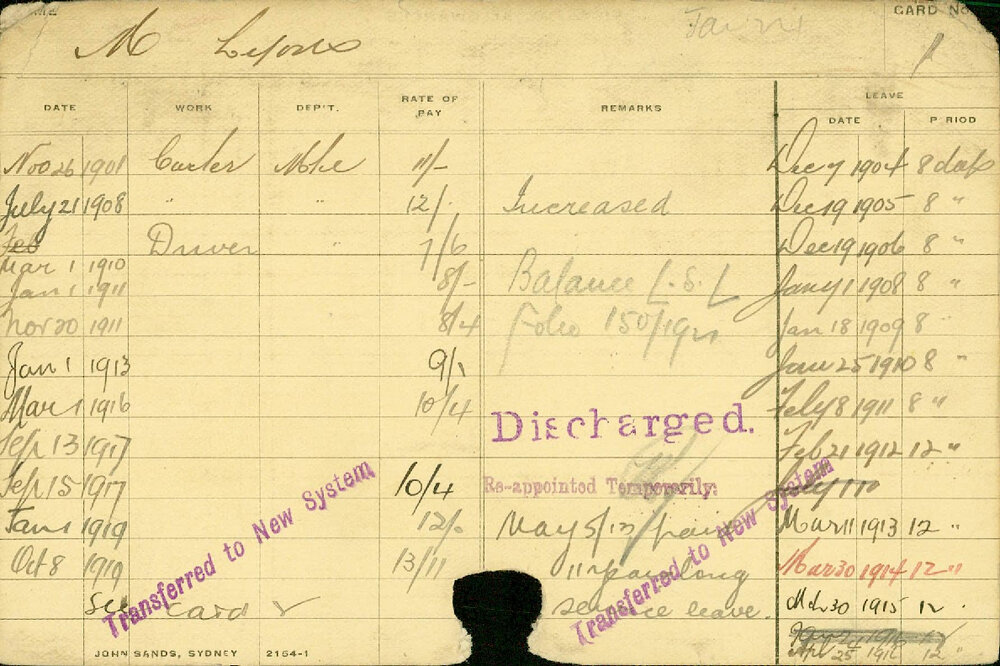 CARD No
M Lyons
1
DATE WORK DEP'T. RATE OF PAY REMARKS LEAVE
DATE P RIOD
Nov 26 1901 Carter 11/- Dec 7 1904 8 days
July 21 1908 " " 12/- Increased Dec 19 1905 8 "
Feb Driver " 7/6 Dec 19 1906 8 "
Mar 1 1910
Jan 1 1911 8/- Balance L.S.L Jany 1 1908 8 "
Nov 20 1911 8/4 Folio 150/19 Jan 18 1909 8 "
Jan 1 1913 9/- Jan 25 1910 8 "
Mar 1 1916 10/4 Discharged. Feby 8 1911 8 "
Sep 13 1917 Feb 21 1912 12 "
Sep 15 1917 10/4 Re-appointed Temporarily:
Jan 1 1919 12/- May 5/13 Mar 11 1913 12 "
Oct 8 1919 13/11 long Mar 30 1914 12 "
See card service leave. Mch 30 1915 12 "
Apr 25 1916 12
Transferred to New System
Transferred to New System
JOHN SANDS, SYDNEY 2154-1